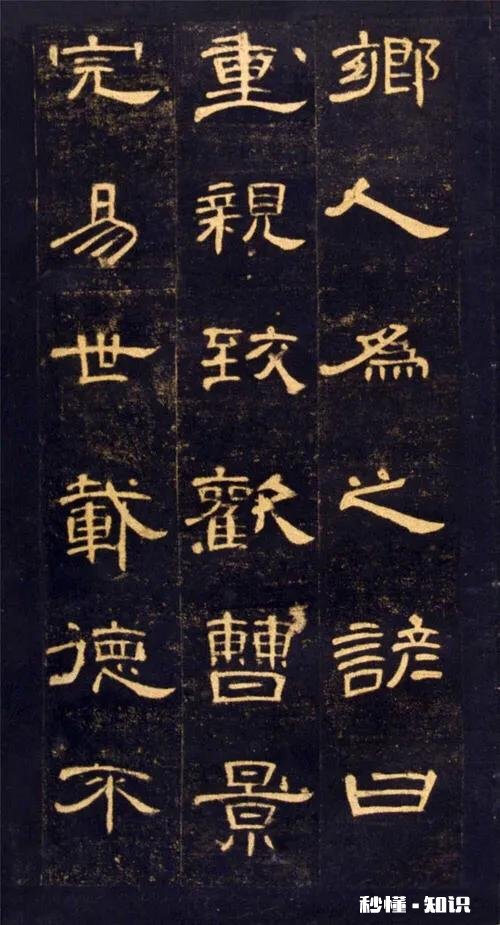 鄉人為之諺曰
重親致歡曹景
完易世載德不
秒懂·知识